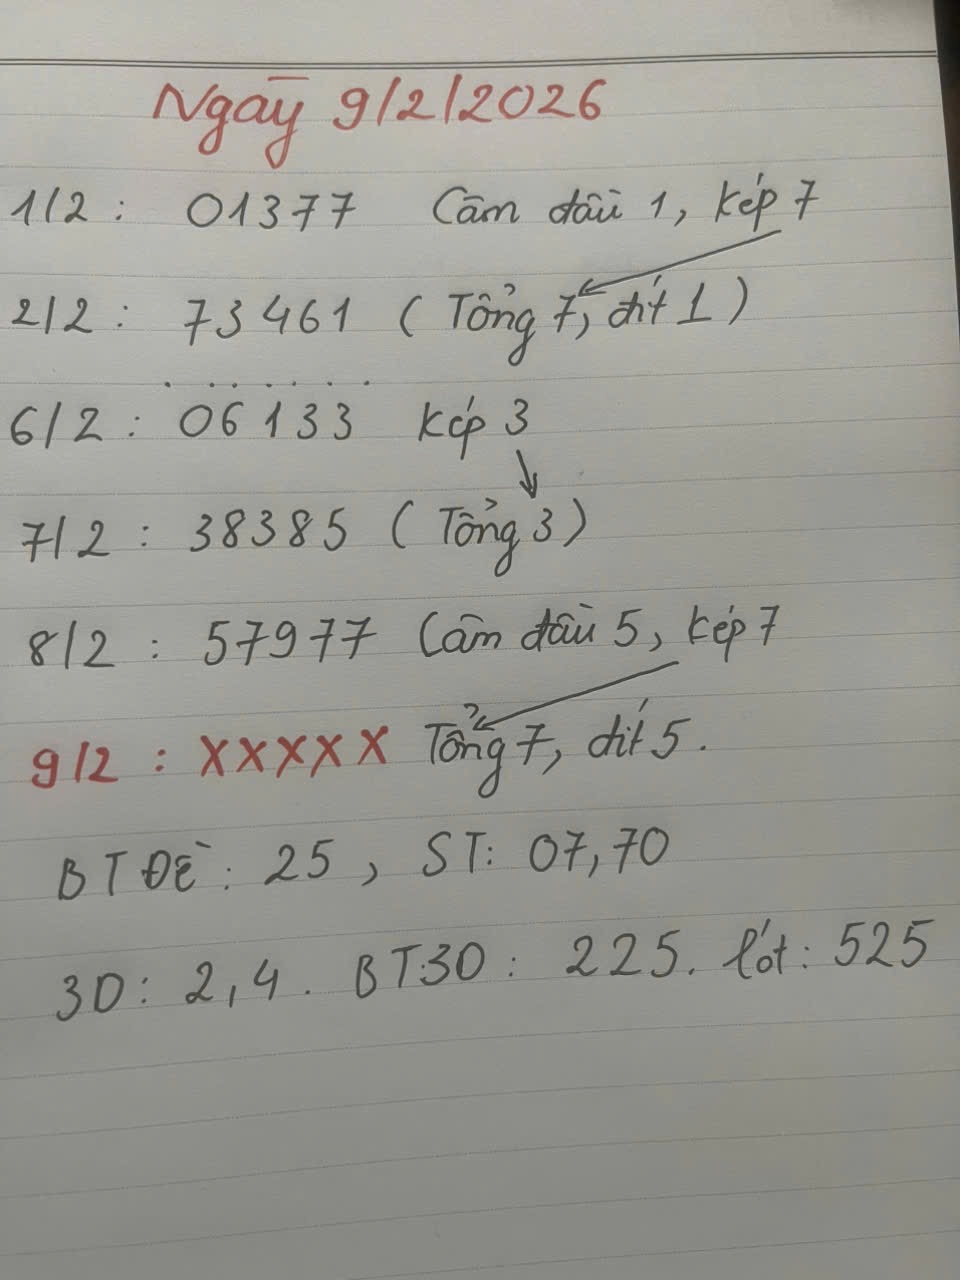 Ngày 9/2/2026
1/2: 01377 Cầm đầu 1, kép 7
2/2: 73461 (Tổng 7, đít 1)
. . . . . .
6/2: 06133 kép 3
7/2: 38385 (Tổng 3)
8/2: 57977 Cầm đầu 5, kép 7
9/2: XXXXX Tổng 7, đít 5.
BT ĐỀ: 25, ST: 07,70
3D: 2,4. BT:3D: 225. lót: 525